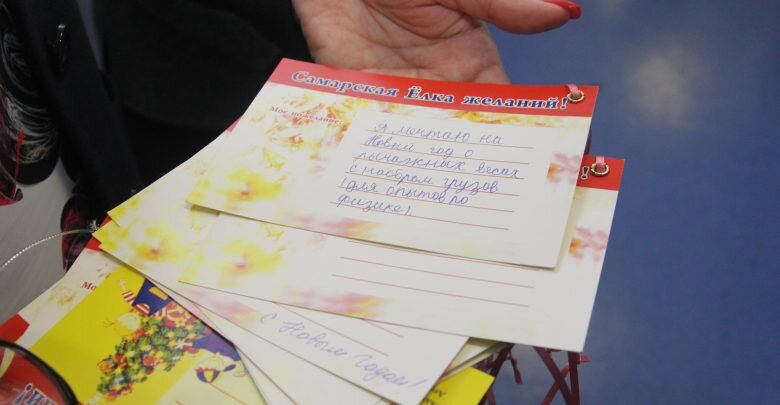 Самарская Ёлка желаний!
Мое пожелание:
Я мечтаю на
Новый год о
рычажных весах
с набором грузов
(для опытов по
физике)
!
Мо
С Новым годом!